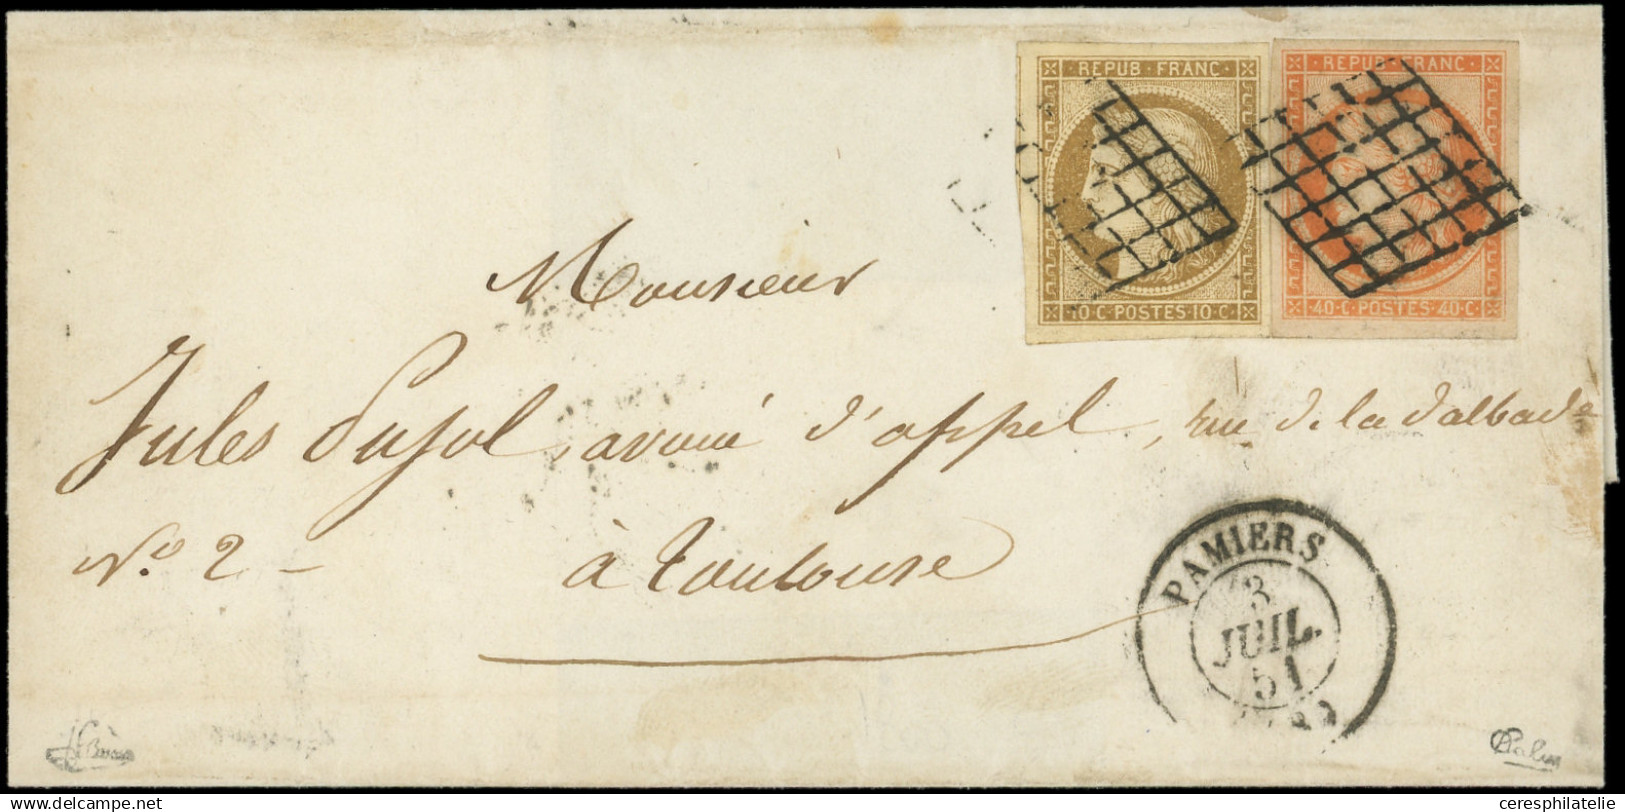 REPUB · FRANC ·
10 · C · POSTES · 10 · C ·
REPUB · FRANC ·
40 · C · POSTES · 40 · C ·
Monsieur
Jules Pujol, avoué d'appel, rue de la dalbade
N.º 2 –
à Toulouse
PAMIERS
3
JUIL.
51
www.delcampe.net
ceresphilatelie